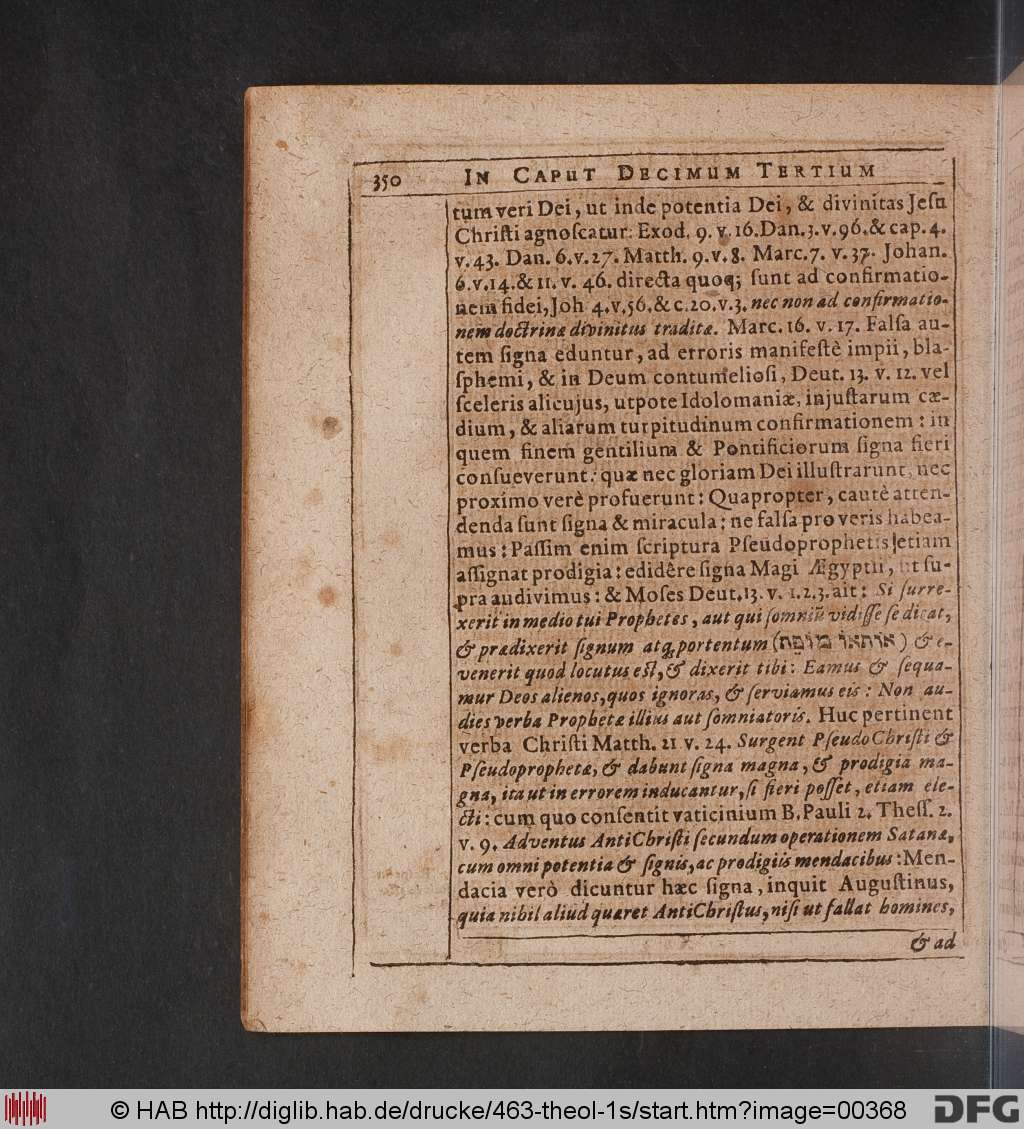 350 IN CAPUT DECIMUM TERTIUM
tum veri Dei, ut inde potentia Dei, & divinitas Jeſu
Chriſti agnoſcatur: Exod. 9. v. 16. Dan. 3. v. 96. & cap. 4.
v. 43. Dan. 6. v. 27. Matth. 9. v. 8. Marc. 7. v. 37. Johan.
6. v. 14. & 11. v. 46. directa quoq; ſunt ad confirmatio-
nem fidei, Joh 4. v. 56. & c. 20. v. 3. nec non ad confirmatio-
nem doctrinæ divinitus traditæ. Marc. 16. v. 17. Falſa au-
tem ſigna eduntur, ad erroris manifeſtè impii, bla-
ſphemi, & in Deum contumelioſi, Deut. 13. v. 12. vel
ſceleris alicujus, utpote Idolomaniæ, injuſtarum cæ-
dium, & aliarum turpitudinum confirmationem: in
quem finem gentilium & Pontificiorum ſigna fieri
conſueverunt: quæ nec gloriam Dei illuſtrarunt, nec
proximo verè profuerunt: Quapropter, cautè atten-
denda ſunt ſigna & miracula: ne falſa pro veris habea-
mus: Paſſim enim ſcriptura Pſeudoprophetis etiam
aſſignat prodigia: edidêre ſigna Magi Ægyptii, ut ſu-
pra audivimus: & Moſes Deut. 13. v. 1. 2. 3. ait: Si ſurre-
xerit in medio tui Prophetes, aut qui ſomniũ vidiſſe ſe dicat,
& prædixerit ſignum atq; portentum (אותאו מופת) & e-
venerit quod locutus eſt, & dixerit tibi: Eamus & ſequa-
mur Deos alienos, quos ignoras, & ſerviamus eis: Non au-
dies verba Prophetæ illius aut ſomniatoris. Huc pertinent
verba Chriſti Matth. 21 v. 24. Surgent PſeudoChriſti &
Pſeudoprophetæ, & dabunt ſigna magna, & prodigia ma-
gna, ita ut in errorem inducantur, ſi fieri poſſet, etiam ele-
cti: cum quo conſentit vaticinium B. Pauli 2. Theſſ. 2.
v. 9. Adventus AntiChriſti ſecundum operationem Satanæ,
cum omni potentia & ſignis, ac prodigiis mendacibus: Men-
dacia verò dicuntur hæc ſigna, inquit Auguſtinus,
quia nihil aliud quæret AntiChriſtus, niſi ut fallat homines,
& ad
© HAB http://diglib.hab.de/drucke/463-theol-1s/start.htm?image=00368
DFG